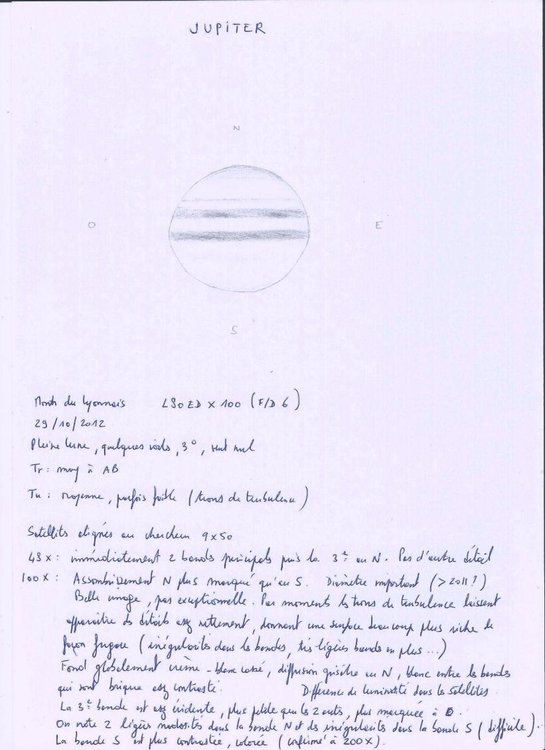 JUPITER
N
O
E
S
Monts du Lyonnais L90 ED x 100 (F/D 6)
29/10/2012
Pleine lune, quelques voiles, 3°, vent nul
Tr : moy à AB
Tu : moyenne, parfois faible (trous de turbulence)
Satellites alignés au chercheur 9x50
43x : immédiatement 2 bandes principales puis la 3e au N. Pas d'autre détail
100x : Assombrissement N plus marqué qu'au S. Diamètre important (> 2011 ?)
Belle image, pas exceptionnelle. Par moments les trous de turbulence laissent
apparaître des détails assez nettement, donnant une surface beaucoup plus riche de
façon fugace (irrégularités dans les bandes, très légères bandes en plus ...)
Fond globalement crème - blanc cassé, diffusion grisâtre au N, blanc entre les bandes
qui sont brique assez contrasté. Différence de luminosité dans les satellites.
La 3e bande est assez évidente, plus pâle que les 2 autres, plus marquée à O.
On note 2 légères nodosités dans la bande N et des irrégularités dans la bande S (difficile).
La bande S est plus contrastée, colorée (confirmé à 200x).